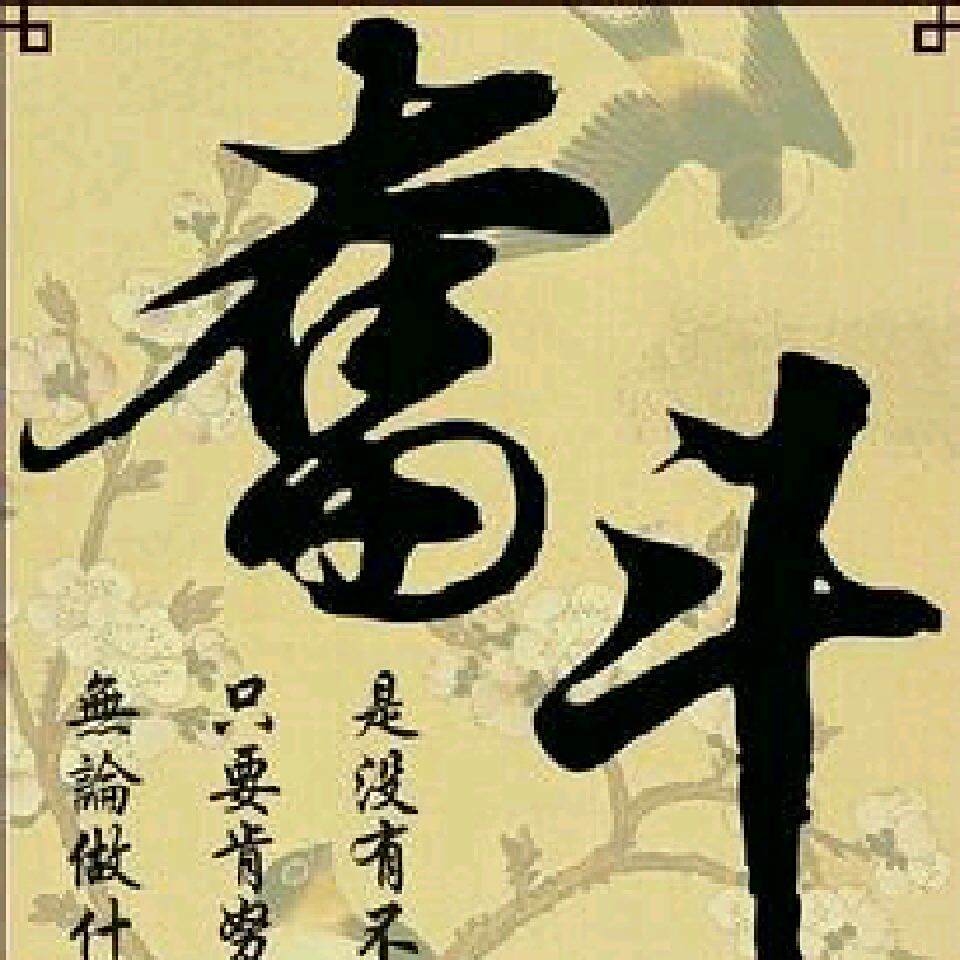 奮斗
無論做什
只要肯努
是没有不